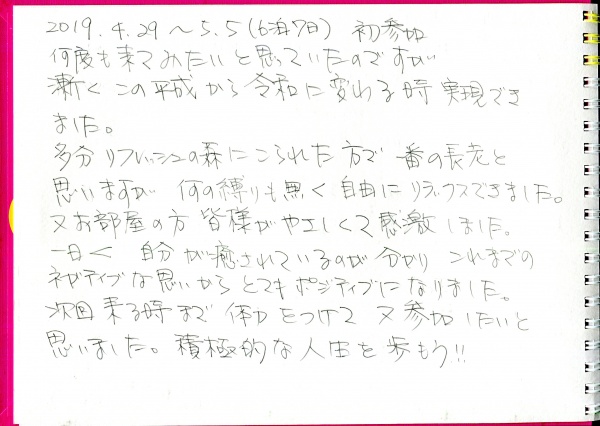 2019.4.29～5.5(6泊7日) 初参加
何度も来てみたいと思っていたのですが
漸くこの平成から令和に変わる時実現でき
ました。
多分リフレッシュの森にこられた方で一番の長老と
思いますが 何の縛りも無く自由にリラックスできました。
又お部屋の方皆様がやさしくて感激しました。
一日一日く 自分が癒されているのが分かり これまでの
ネガティブな思いからとてもポジティブになりました。
次回来る時まで体力をつけて又参加したいと
思いました。積極的な人生を歩もう!!